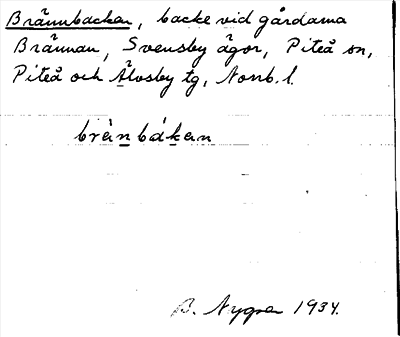 Brännbacken, backe vid gårdarna
Brännan, Svensby ägor, Piteå sn,
Piteå och Älvsby tg, Norrb. l.
brä̀nbákan
B. Nygren 1934.